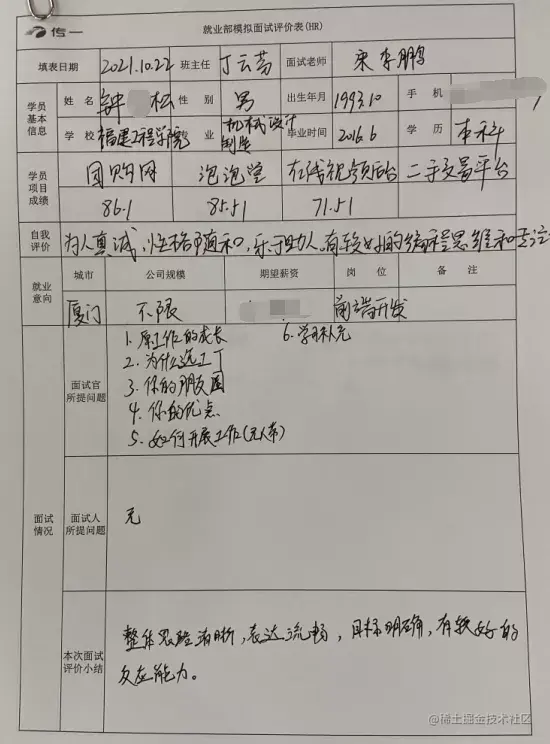 传一
就业部模拟面试评价表(HR)
填表日期 2021.10.22 班主任 丁云芬 面试老师 宋李鹏
学员基本信息
姓名 钟 松 性别 男 出生年月 1993.10 手机
学校 福建工程学院 专业 机械设计制造 毕业时间 2016.6 学历 本科
学员项目成绩
团购网 泡泡堂 在线视频后台 二手交易平台
86.1 85.51 71.51
自我评价 为人真诚,性格随和,乐于助人,有较好的编程思维和专注
就业意向
城市 公司规模 期望薪资 岗位 备注
厦门 不限 前端开发
面试情况
面试官所提问题
1. 原工作的成长 6. 学习补充
2. 为什么选IT
3. 你的朋友圈
4. 你的优点
5. 如何开展工作(无人带)
面试人所提问题
无
本次面试评价小结
整体思路清晰,表达流畅,目标明确,有较好的
反应能力。
@稀土掘金技术社区